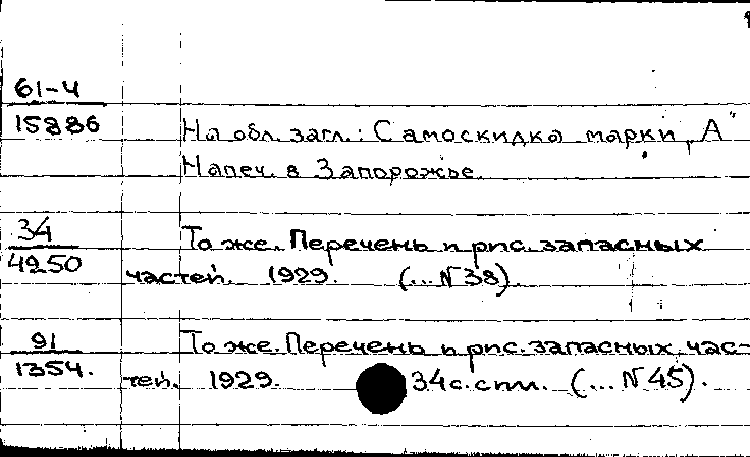 61-4
15886
На обл. загл.: Самоскидка марки „А"
Напеч. в Запорожье.
34
4250
То же. Перечень и рис. запасных
частей. 1929. (...N38)
91
1354.
То же. Перечень и рис. запасных час-
тей. 1929. 34с. сил. (...N45).